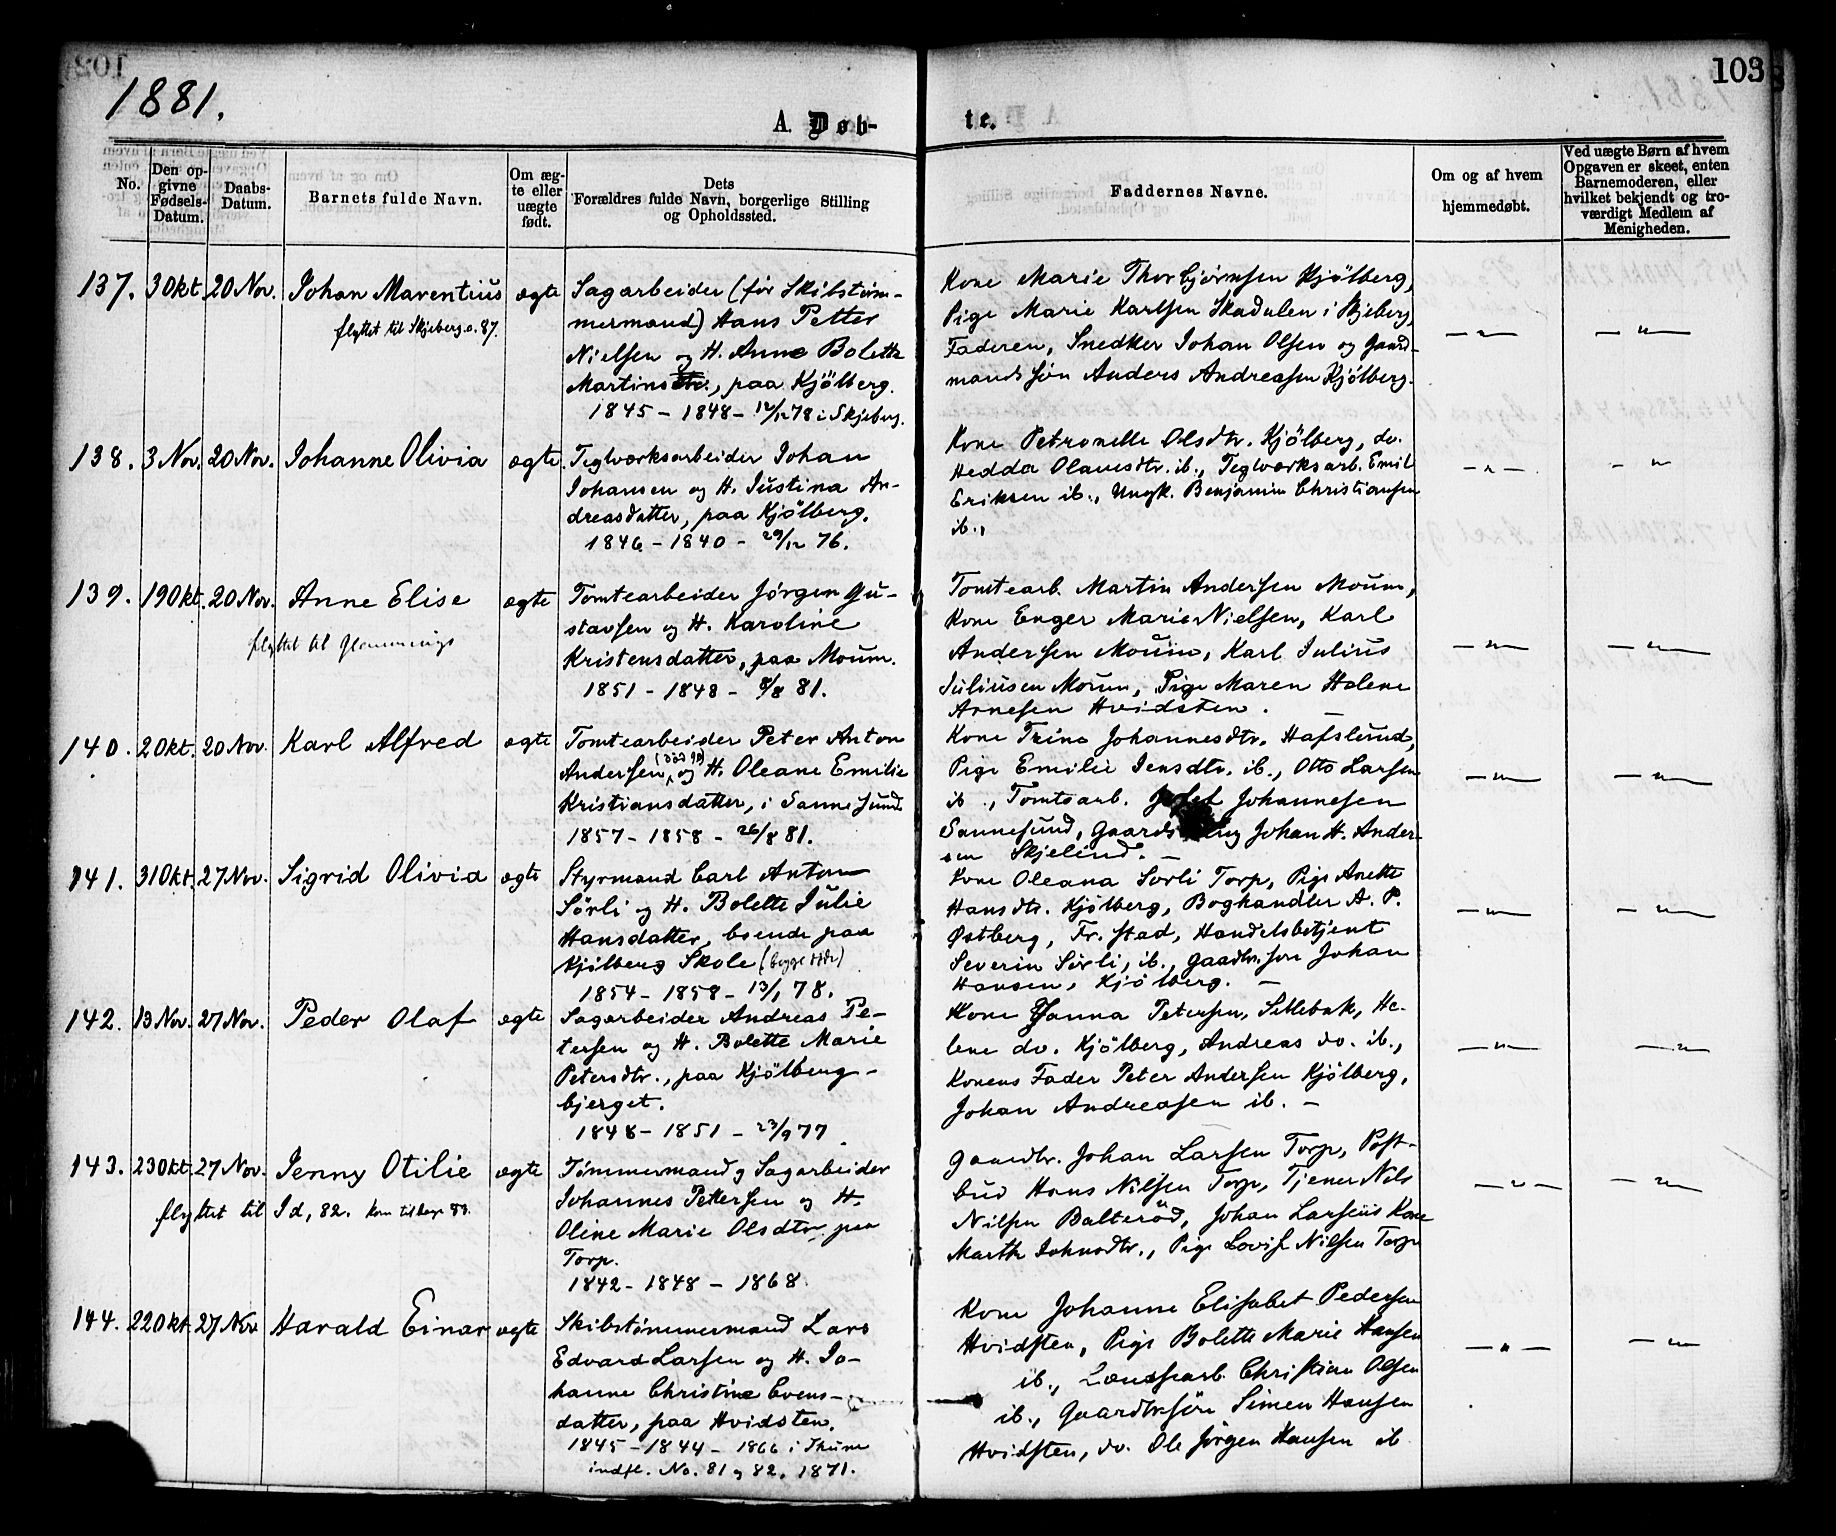 103
1881.
A. Døb-
te.
No.
Den op-
givne
Fødsels-
Datum.
Daabs-
Datum.
Barnets fulde Navn.
Om æg-
te eller
uægte
født.
Dets
Forældres fulde Navn, borgerlige Stilling
og Opholdssted.
Faddernes Navne.
Om og af hvem
hjemmedøbt.
Ved uægte Børn af hvem
Opgaven er skeet, enten
Barnemoderen, eller
hvilket bekjendt og tro-
værdigt Medlem af
Menigheden.
137. 3 Okt. 20 Nov. Johan Marentius ægte
flyttet til Skjeberg. 87.
Sagarbeider (før Skibstøm-
mermand) Hans Petter
Nielsen og H. Anne Bolette
Martins, paa Kjölberg.
1845 - 1848 - 12/12 78 i Skjeberg.
Kone Marie Thorbjørnsen Kjölberg,
Pige Marie Karlsen Skadalen i Skjeberg,
Faderen, Snedker Johan Olsen og Gaard-
mands søn Anders Andreasen Kjölberg.
— " —
— " —
138. 3 Nov. 20 Nov. Johanne Olivia ægte
Teglværksarbeider Johan
Johansen og H. Justina An-
dreasdatter, paa Kjölberg.
1846 - 1840 - 29/12 76.
Kone Petronelle Olsdtr. Kjölberg, do.
Hedda Olausdtr. ib., Teglværksarb. Emil
Eriksen ib., Ungk. Benjamin Christiansen
ib.,
— " —
— "
139. 19 Okt. 20 Nov. Anne Elise ægte
flyttet til Glemminge
Tomtearbeider Jørgen Gu-
stavsen og H. Karoline
Kristensdatter, paa Moum.
1851 - 1848 - 8/8 81.
Tomtearb. Martin Andersen Moum,
Kone Enger Marie Nielsen, Karl
Andersen Moum, Karl Julius
Juliusen Moum, Pige Maren Helene
Arnesen Hvidsten.
— " —
— " —
140. 2 Okt. 20 Nov. Karl Alfred ægte
Tomtearbeider Peter Anton
Andersen og H. Oleane Emilie
Kristiansdatter, i Sannesund.
1857 - 1858 - 26/8 81.
Kone Trine Johannesdtr. Hafslund,
Pige Emilie Jensdtr. ib., Otto Larsen
ib., Tomtearb. Josef Johannesen
Sannesund, Johan H. Ander-
sen Skjelind. —
— " —
— " —
141. 31 Okt. 27 Nov. Sigrid Olivia ægte
Styrmand Carl Anton
Sörli og H. Bolette Julie
Hansdatter, boende paa
Kjölberg Skole
1854 - 1858 - 13/1 78.
Kone Oleana Sorli Torp, Pige Anette
Hansdtr. Kjölberg, Boghandler A. P.
Østberg, Fr. stad, Handelsbetjent
Severin Sörli, ib., gaardbr. søn Johan
Hansen, Kjölberg. —
— " —
— " —
142. 13 Nov. 27 Nov. Peder Olaf ægte
Sagarbeider Andreas Pe-
tersen og H. Bolette Marie
Petersdtr., paa Kjölberg-
bjerget.
1848 - 1851 - 23/9 77.
Kone Hanna Petersen, Sellebak, He-
lene do. Kjölberg, Andreas do. ib.,
Konens Fader Peter Andersen Kjölberg,
Johan Andreasen ib. —
— " —
— " —
143. 23 Okt. 27 Nov. Jenny Otilie ægte
flyttet til Id, 82.
Tømmermand og Sagarbeider
Johannes Pettersen og H.
Oline Marie Olsdtr. paa
Torp.
1842 - 1848 - 1868
Gaardbr. Johan Larsen Torp, Post-
bud Hans Nilsen Torp, Tjener Nils
Nilsen Balteröd, Johan Larsens Kone
Marth Johnsdtr., Pige Lovise Nilsen Torp
— " —
— " —
144. 22 Okt. 27 Nov. Harald Einar ægte
Skibstømmermand Lars
Edvard Larsen og H. Jo-
hanne Christine Evens-
datter, paa Hvidsten.
1845 - 1844 - 1866 i Thune
indfl. No. 81 og 82. 1871.
Kone Johanne Elisabet Pedersen
Hvidsten, Pige Bolette Marie Hansen
ib., Christian Olsen
ib., Gaardbr.søn Simen Hansen
Hvidsten, do. Ole Jørgen Hansen ib
— " —
— " —